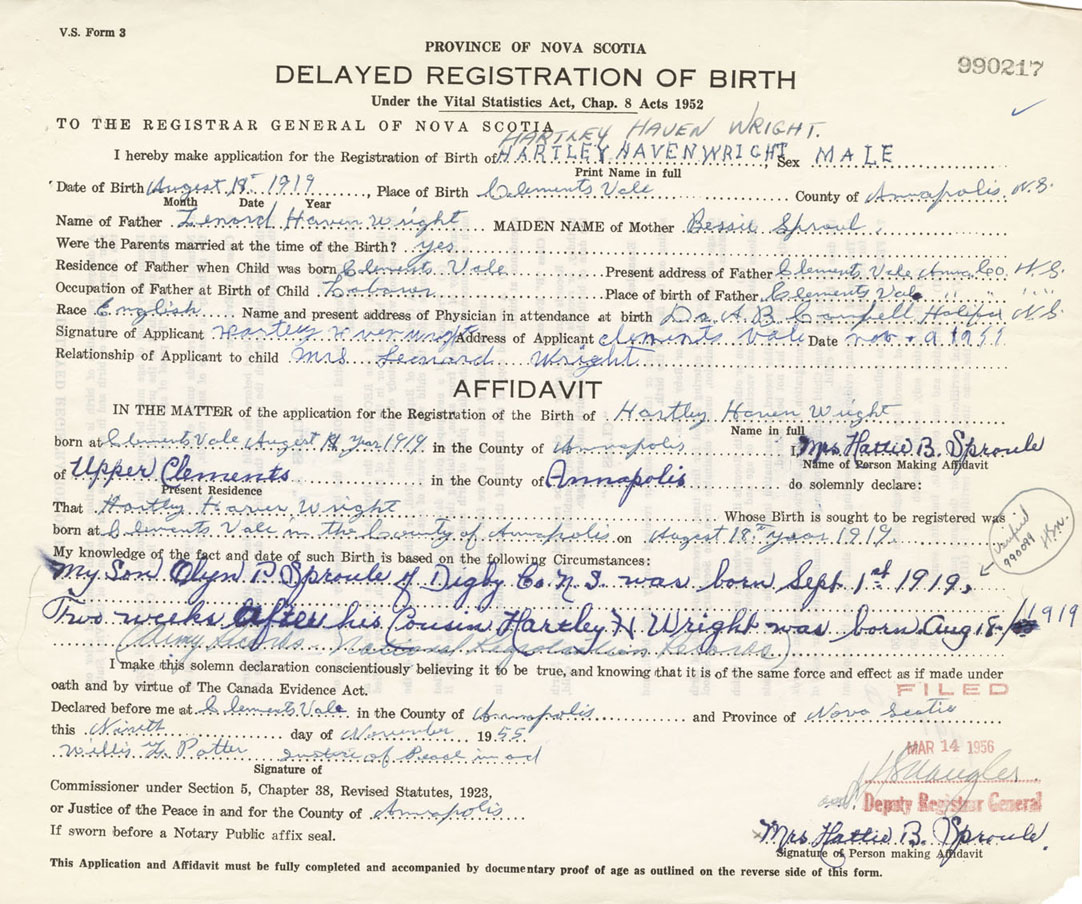 V.S. Form 3
PROVINCE OF NOVA SCOTIA
DELAYED REGISTRATION OF BIRTH
990217
Under the Vital Statistics Act, Chap. 8 Acts 1952
TO THE REGISTRAR GENERAL OF NOVA SCOTIA
HARTLEY HAVEN WRIGHT.
I hereby make application for the Registration of Birth of HARTLEY HAVEN WRIGHT Sex MALE
Print Name in full
Date of Birth August 18th 1919, Place of Birth Clements Vale County of Annapolis N.S.
Month Date Year
Name of Father Lenord Haven Wright MAIDEN NAME of Mother Bessie Sproul
Were the Parents married at the time of the Birth? yes
Residence of Father when Child was born Clements Vale Present address of Father Clements Vale Anna Co. N.S.
Occupation of Father at Birth of Child Labarer Place of birth of Father Clements Vale " " " "
Race English Name and present address of Physician in attendance at birth Dr. A.B. Campbell Halifax N.S.
Signature of Applicant Hartley Address of Applicant Clements Vale Date Nov
Relationship of Applicant to child Mrs Leonard Wright
AFFIDAVIT
IN THE MATTER of the application for the Registration of the Birth of Hartley Haven Wright
Name in full
born at Clements Vale August 18 Year 1919 in the County of Annapolis I, Mrs Hattie B. Sproule
Name of Person Making Affidavit
of Upper Clements in the County of Annapolis do solemnly declare:
Present Residence
That Hartley Haven Wright Whose Birth is sought to be registered was
born at Clements Vale in the County of Annapolis on August 18th year 1919
Verified
990094
My knowledge of the fact and date of such Birth is based on the following Circumstances:
My Son Olyn P. Sproule of Digby Co. N.S. was born Sept 1st 1919,
Two weeks After his Cousin Hartley H Wright was born Aug 18- 1919
(Army Records National Registration Records)
I make this solemn declaration conscientiously believing it to be true, and knowing that it is of the same force and effect as if made under
oath and by virtue of The Canada Evidence Act.
FILED
Declared before me at Clements Vale in the County of Annapolis and Province of Nova Scotia
this Nineth day of November 1955
MAR 14 1956
Willis Potter Justice of Peace in
Signature of
Commissioner under Section 5, Chapter 38, Revised Statutes, 1923,
Deputy Registrar General
or Justice of the Peace in and for the County of Annapolis
If sworn before a Notary Public affix seal.
Mrs Hattie B. Sproule.
Signature of Person making Affidavit
This Application and Affidavit must be fully completed and accompanied by documentary proof of age as outlined on the reverse side of this form.